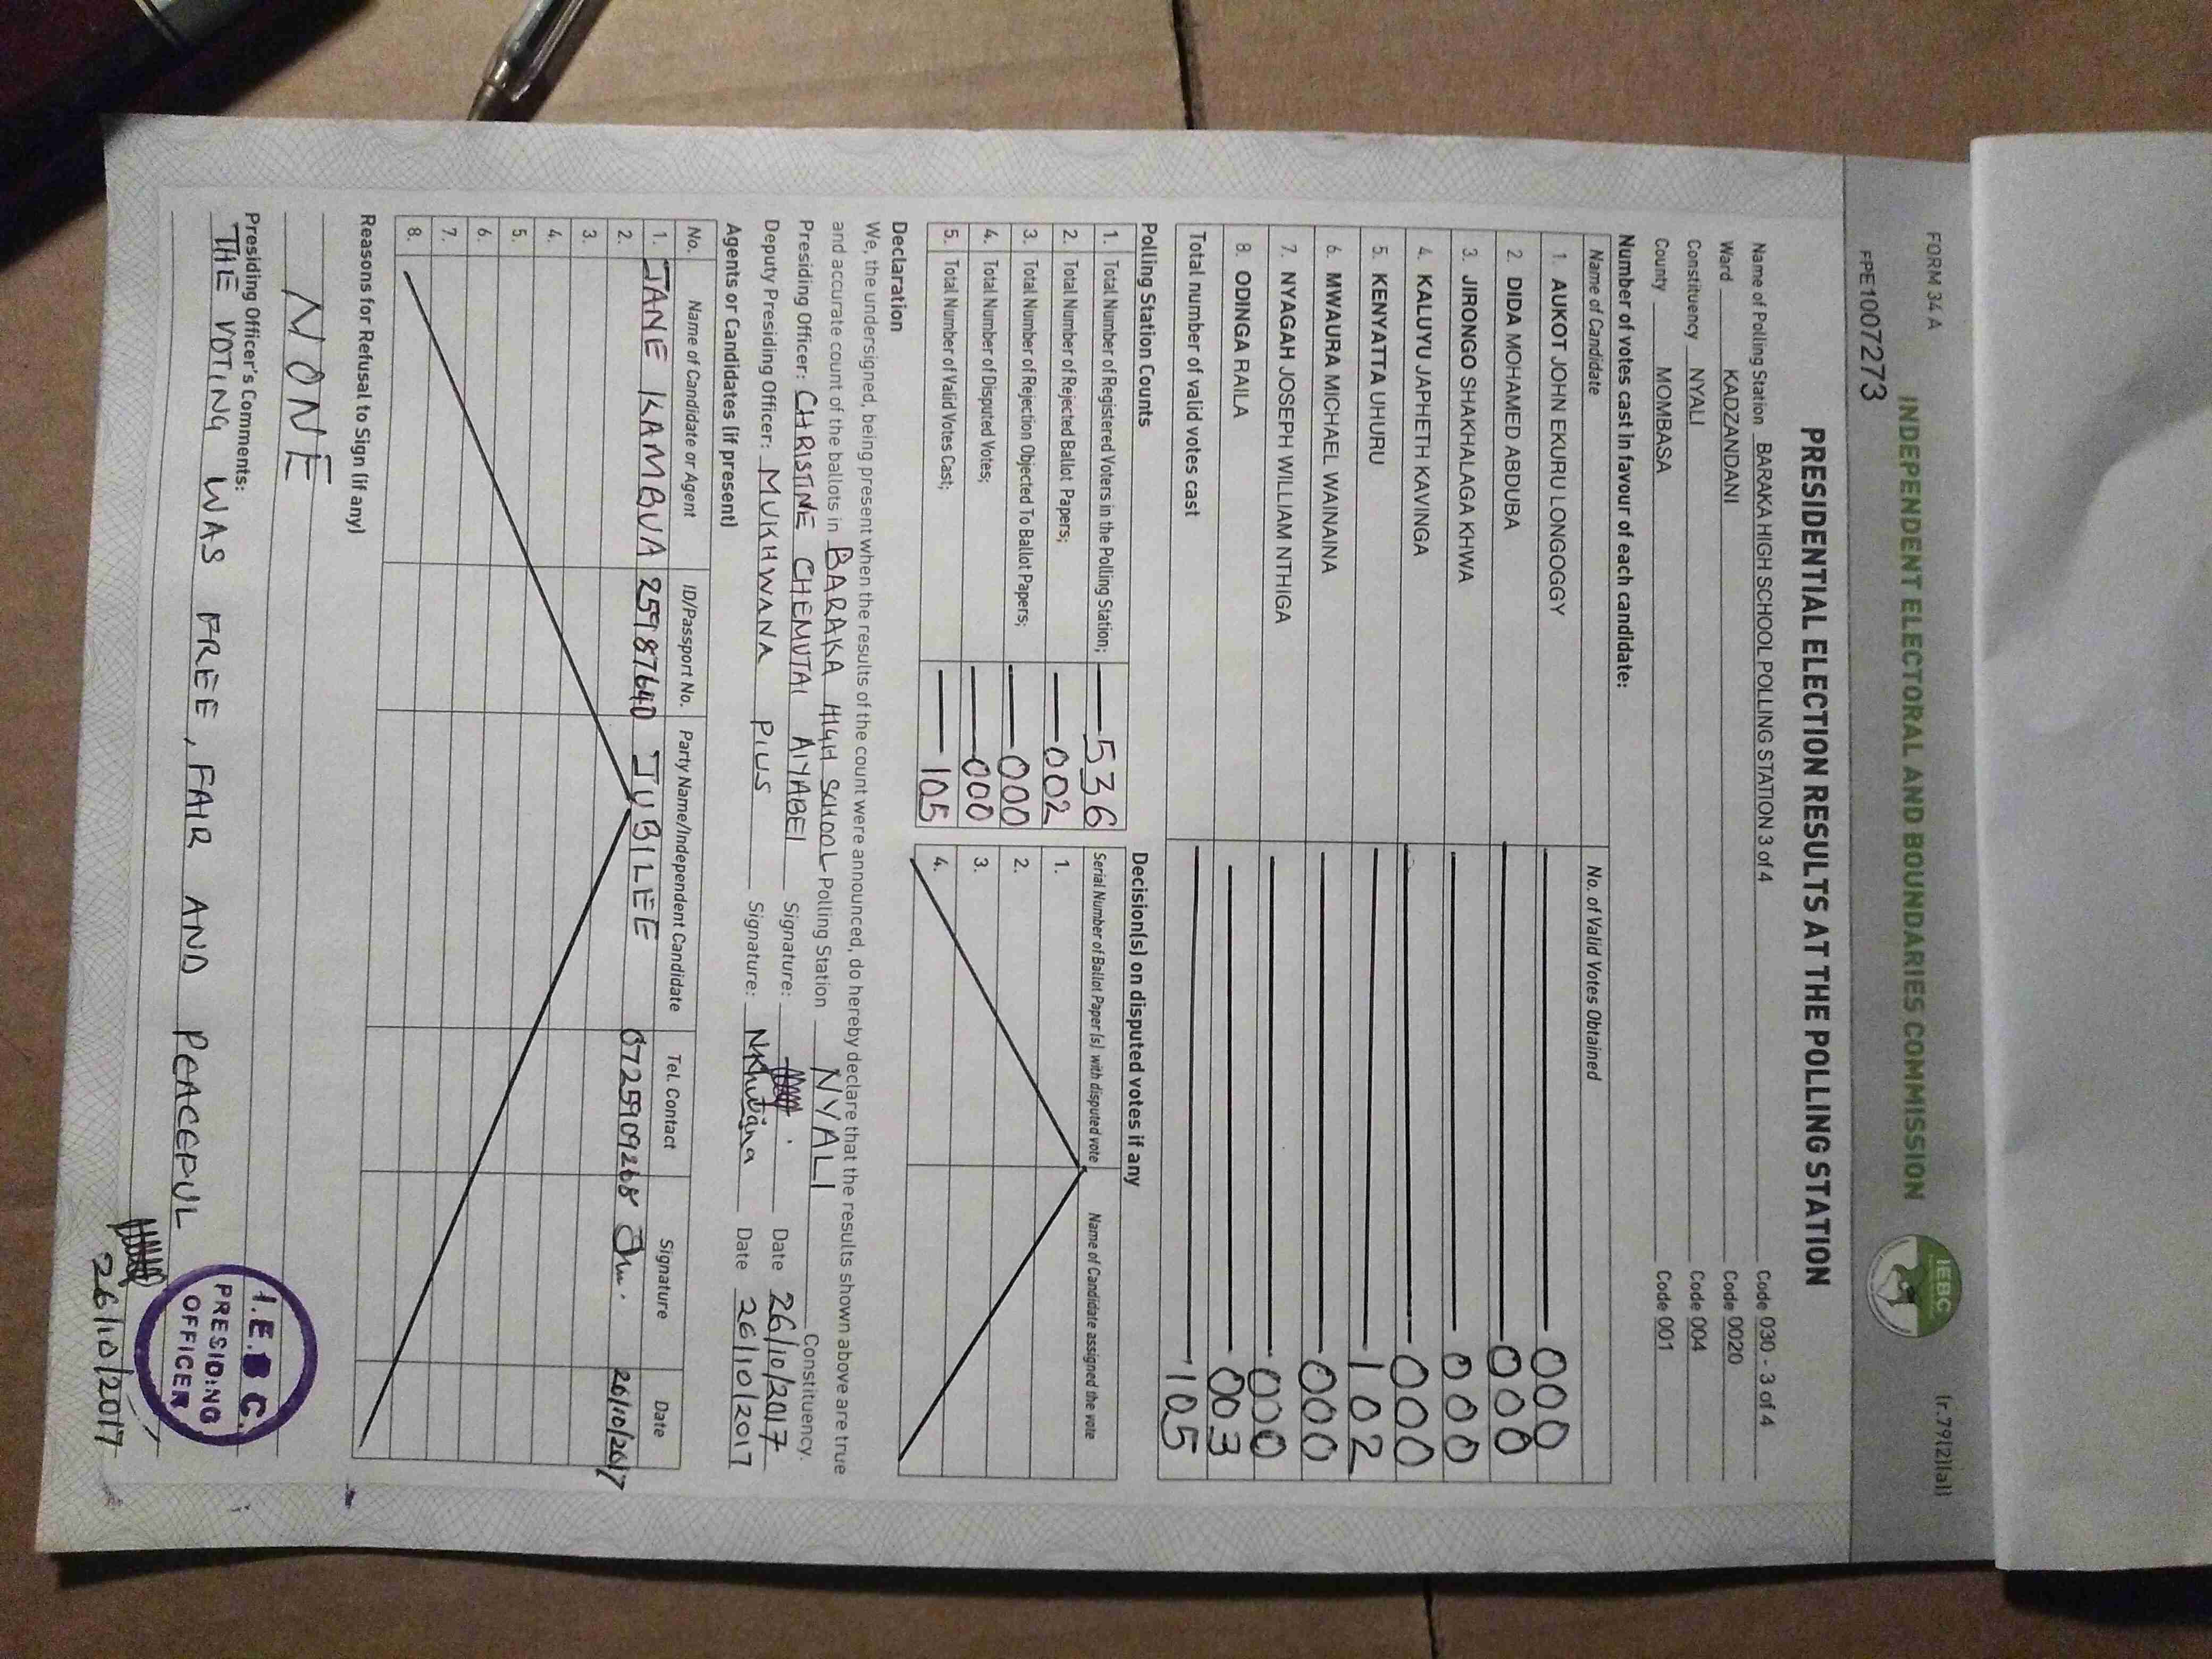 FORM 34 A
(r.79(2)(a))
INDEPENDENT ELECTORAL AND BOUNDARIES COMMISSION
IEBC
FPE1007273
PRESIDENTIAL ELECTION RESULTS AT THE POLLING STATION
Name of Polling Station BARAKA HIGH SCHOOL POLLING STATION 3 of 4 Code 030 - 3 of 4
Ward KADZANDANI Code 0020
Constituency NYALI Code 004
County MOMBASA Code 001
Number of votes cast in favour of each candidate:
Name of Candidate No. of Valid Votes Obtained
1. AUKOT JOHN EKURU LONGOGGY 000
2. DIDA MOHAMED ABDUBA 000
3. JIRONGO SHAKHALAGA KHWA 000
4. KALUYU JAPHETH KAVINGA 000
5. KENYATTA UHURU 102
6. MWAURA MICHAEL WAINAINA 000
7. NYAGAH JOSEPH WILLIAM NTHIGA 000
8. ODINGA RAILA 003
Total number of valid votes cast 105
Polling Station Counts Decision(s) on disputed votes if any
1. Total Number of Registered Voters in the Polling Station; 536 Serial Number of Ballot Paper (s) with disputed vote Name of Candidate assigned the vote
2. Total Number of Rejected Ballot Papers; 002 1.
3. Total Number of Rejection Objected To Ballot Papers; 000 2.
4. Total Number of Disputed Votes; 000 3.
5. Total Number of Valid Votes Cast; 105 4.
Declaration
We, the undersigned, being present when the results of the count were announced, do hereby declare that the results shown above are true
and accurate count of the ballots in BARAKA HIGH SCHOOL Polling Station NYALI Constituency.
Presiding Officer: CHRISTINE CHEMUTAI AIYABEI Signature: Date 26/10/2017
Deputy Presiding Officer: MUKHWANA PIUS Signature: Date 26/10/2017
Agents or Candidates (if present)
No. Name of Candidate or Agent ID/Passport No. Party Name/Independent Candidate Tel. Contact Signature Date
1. JANE KAMBUA 25987640 JUBILEE 0725909268 26/10/2017
2.
3.
4.
5.
6.
7.
8.
Reasons for Refusal to Sign (if any)
NONE
Presiding Officer's Comments:
THE VOTING WAS FREE, FAIR AND PEACEFUL
I.E.B.C.
PRESIDING
OFFICER
26/10/2017